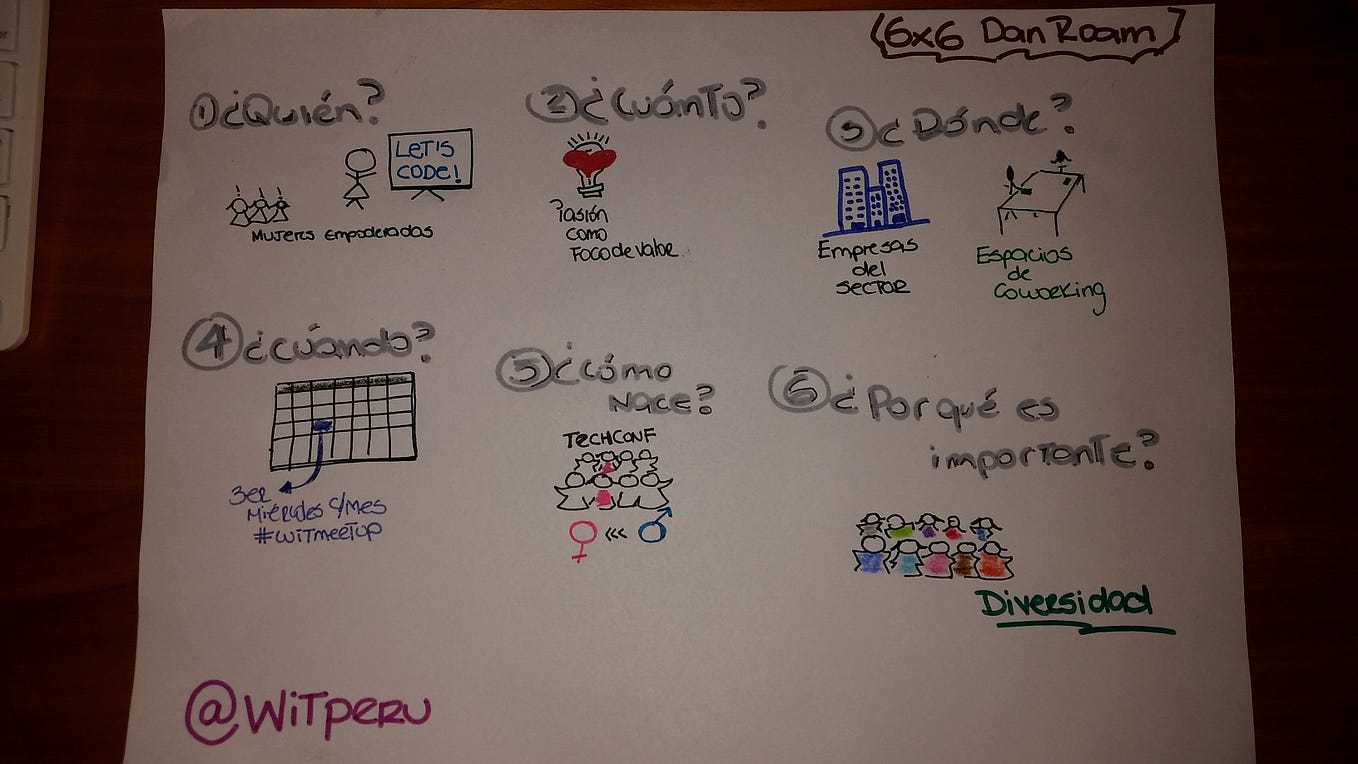 (6x6 Dan Roam)
1 ¿Quién?
LET'S
CODE!
Mujers Empoderadas
2 ¿Cuánto?
Pasión
como
Foco de valor
3 ¿Dónde?
Empresas
del
Sector
Espacios
de
Coworking
4 ¿Cuándo?
3er
Miércoles c/mes
#WiTmeeTup
5 ¿Cómo
Nace?
TECHCONF
<<<
6 ¿Por qué es
importante?
Diversidad
@WiTPERU